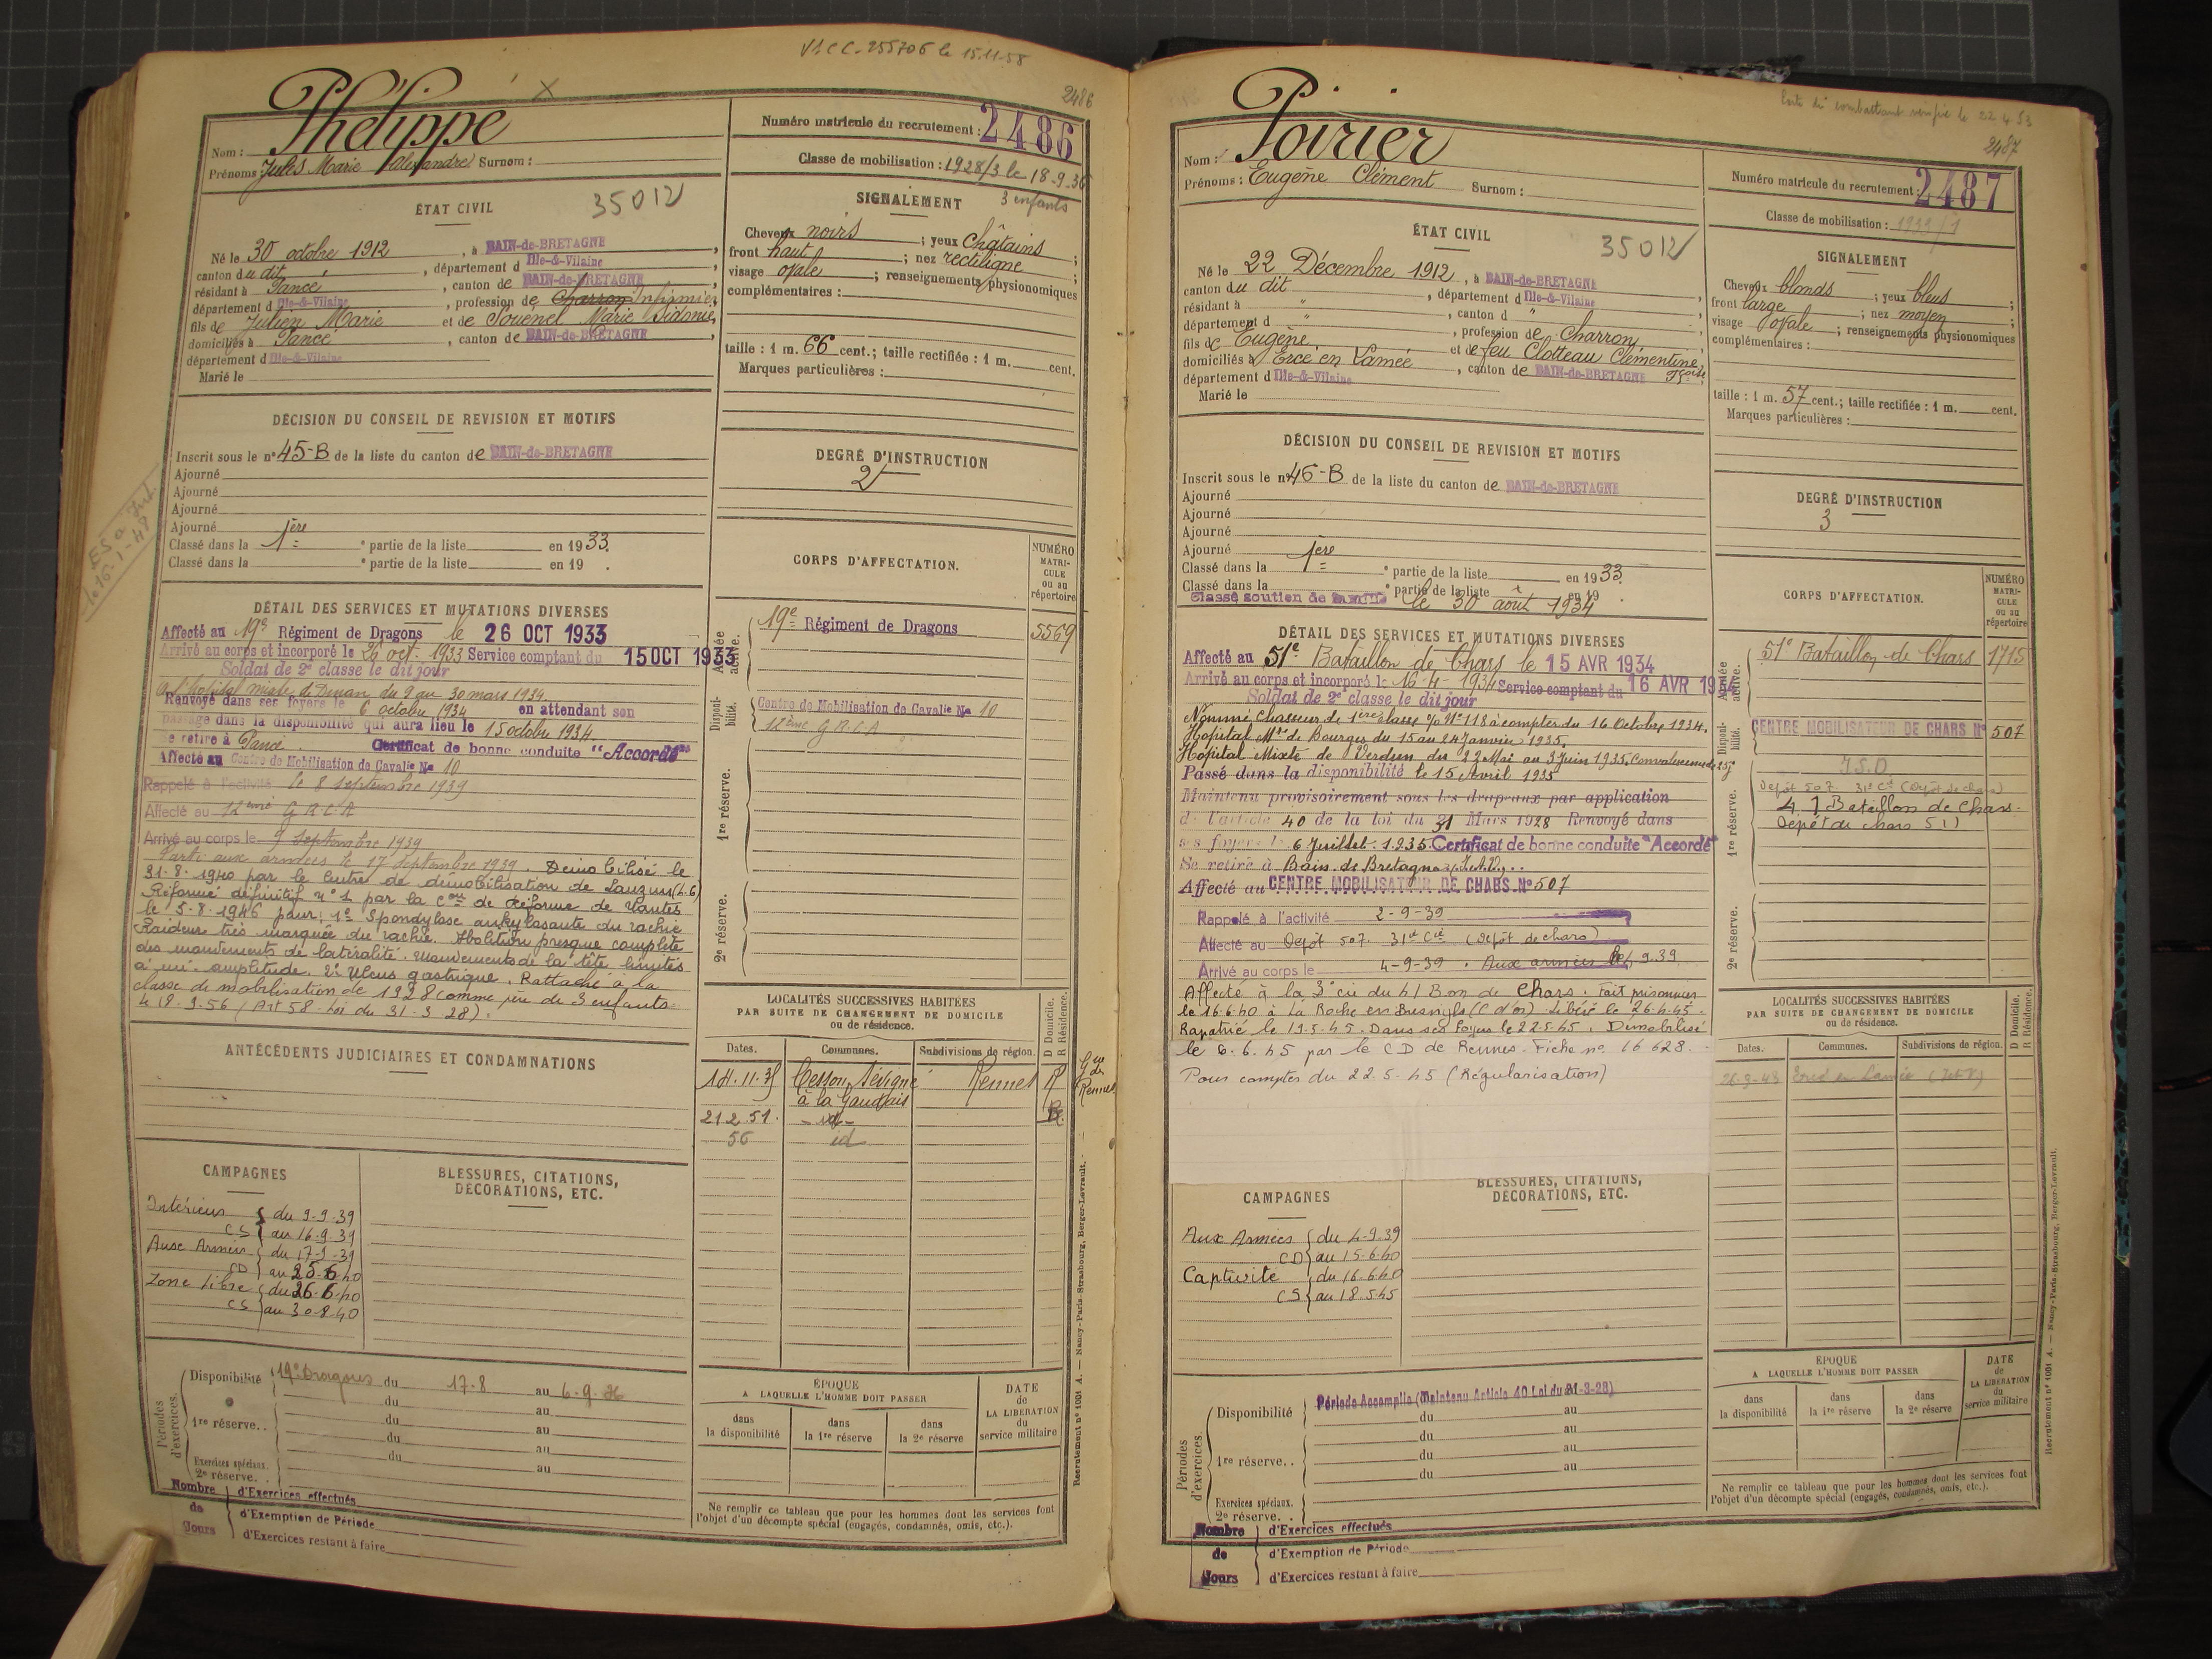 V1 CC-255706 le 15.11.58
2486
Nom : Phélippé
Prénoms : Jules Marie Alexandre Surnom :
Numéro matricule du recrutement : 2486
Classe de mobilisation : 1928/3 le 18.9.56
3 enfants
ÉTAT CIVIL
35012
Né le 30 octobre 1912, à BAIN-de-BRETAGNE,
canton du dit, département d Ille-&-Vilaine,
résidant à Pancé, canton de BAIN-de-BRETAGNE,
département d Ille-&-Vilaine, profession de Charron Infirmier,
fils de Julien Marie et de Souenel Marie Sidonie,
domiciliés à Pancé, canton de BAIN-de-BRETAGNE
département d Ille-&-Vilaine
Marié le
SIGNALEMENT
Cheveux noirs ; yeux châtains ;
front haut ; nez rectiligne ;
visage ovale ; renseignements physionomiques
complémentaires :
taille : 1 m. 66 cent.; taille rectifiée : 1 m. cent.
Marques particulières :
DÉCISION DU CONSEIL DE REVISION ET MOTIFS
Inscrit sous le n° 45-B de la liste du canton de BAIN-de-BRETAGNE
Ajourné
Ajourné
Ajourné
Ajourné
Classé dans la 1ère partie de la liste en 1933.
Classé dans la partie de la liste en 19 .
le 16-1-48
DEGRÉ D'INSTRUCTION
2
DÉTAIL DES SERVICES ET MUTATIONS DIVERSES
Affecté au 19e Régiment de Dragons le 26 OCT 1933
Arrivé au corps et incorporé le 26 oct. 1933 Service comptant du 15 OCT 1933
Soldat de 2e classe le dit jour
A l'hôpital mixte de Dinan du 9 au 30 mars 1934.
Renvoyé dans ses foyers le 6 octobre 1934 en attendant son
passage dans la disponibilité qui aura lieu le 15 octobre 1934
Se retire à Pancé. Certificat de bonne conduite "Accordé"
Affecté au Centre de Mobilisation de Cavalie No 10
Rappelé à l'activité le 8 septembre 1939
Affecté au 12ème G R C A
Arrivé au corps le 9 septembre 1939
Parti aux armées le 17 septembre 1939. Démobilisé le
31-8-1940 par le Centre de démobilisation de Lauzun (L.G)
Réformé définitif n° 1 par la Con de Réforme de Nantes
le 5-8-1946 pour : 1° Spondylose ankylosante du rachis
Raideur très marquée du rachis. Abolition presque complète
des mouvements de latéralité. Mouvements de la tête limités
à mi-amplitude. 2° Ulcus gastrique. Rattaché à la
classe de mobilisation de 1928 comme père de 3 enfants
le 18-9-56 (Art 58 - Loi du 31-3-28).
CORPS D'AFFECTATION.
NUMÉRO MATRI-CULE ou au répertoire
Armée active.
19e Régiment de Dragons 5569
Disponibilité.
Centre de Mobilisation de Cavalie No 10
12ème G R C A
1re réserve.
2e réserve.
ANTÉCÉDENTS JUDICIAIRES ET CONDAMNATIONS
LOCALITÉS SUCCESSIVES HABITÉES
PAR SUITE DE CHANGEMENT DE DOMICILE
ou de résidence.
D Domicile.
R Résidence.
Dates. Communes. Subdivisions de région.
14.11.35 Cesson Sévigné Rennes R
à la Gaudrais
21.2.51. - id - R
56 id
CAMPAGNES
Intérieur du 9-9-39
CS au 16.9.39
Aux Armées du 17-9-39
CD au 25-6-40
Zone Libre du 26-6-40
CS au 30-8-40
BLESSURES, CITATIONS,
DÉCORATIONS, ETC.
Périodes d'exercices.
Disponibilité 19e Dragons du 17-8 au 6-9-36
du au
1re réserve.. du au
du au
Exercices spéciaux. du au
2e réserve. . au
Nombre de Jours
d'Exercices effectués
d'Exemption de Période
d'Exercices restant à faire
ÉPOQUE
A LAQUELLE L'HOMME DOIT PASSER
dans la disponibilité
dans la 1re réserve
dans la 2e réserve
DATE de LA LIBÉRATION du service militaire
Ne remplir ce tableau que pour les hommes dont les services font
l'objet d'un décompte spécial (engagés, condamnés, omis, etc.).
Recrutement n° 1001 A. — Nancy-Paris-Strasbourg, Berger-Levrault.
Carte du combattant vérifié le 22 4 53
2487
Nom : Poirier
Prénoms : Eugène Clément Surnom :
Numéro matricule du recrutement : 2487
Classe de mobilisation :
ÉTAT CIVIL
35012
Né le 22 Décembre 1912, à BAIN-de-BRETAGNE
canton du dit, département d Ille-&-Vilaine,
résidant à " , canton d "
département d " , profession de Charron,
fils de Eugène et de feu Clotteau Clémentine Fçoise,
domiciliés à Ercé en Lamée, canton de BAIN-de-BRETAGNE
département d Ille-&-Vilaine
Marié le
SIGNALEMENT
Cheveux blonds ; yeux bleus ;
front large ; nez moyen ;
visage ovale ; renseignements physionomiques
complémentaires :
taille : 1 m. 57 cent.; taille rectifiée : 1 m. cent.
Marques particulières :
DÉCISION DU CONSEIL DE REVISION ET MOTIFS
Inscrit sous le n° 46-B de la liste du canton de BAIN-de-BRETAGNE
Ajourné
Ajourné
Ajourné
Ajourné
Classé dans la 1ère partie de la liste en 1933.
Classé dans la partie de la liste en 19 .
Classé soutien de famille le 30 août 1934
DEGRÉ D'INSTRUCTION
3
DÉTAIL DES SERVICES ET MUTATIONS DIVERSES
Affecté au 51e Bataillon de Chars le 15 AVR 1934
Arrivé au corps et incorporé le 16-4-1934 Service comptant du 16 AVR 1934
Soldat de 2e classe le dit jour
Nommé chasseur de 1ère classe o/o N° 118 à compter du 16 Octobre 1934.
Hôpital Mre de Bourges du 15 au 24 Janvier 1935.
Hôpital Mixte de Verdun du 22 Mai au 3 Juin 1935, Convalescence de 25j
Passé dans la disponibilité le 15 Avril 1935
Maintenu provisoirement sous les drapeaux par application
de l'article 40 de la loi du 31 Mars 1928 Renvoyé dans
ses foyers le 6 Juillet 1935. Certificat de bonne conduite "Accordé"
Se retire à Bain de Bretagne (I. et V.)
Affecté au CENTRE MOBILISATEUR DE CHARS N° 507
Rappelé à l'activité 2-9-39
Affecté au Dépôt 507. 31e Cie (Dépôt de chars)
Arrivé au corps le 4-9-39. Aux armées le 4.9.39.
Affecté à la 3e cie du 41 Bon de Chars. Fait prisonnier
le 16.6.40 à La Roche en Bresnyls (C d'or) Libéré le 26.4.45.
Rapatrié le 19.5.45. Dans ses foyers le 22.5.45. Démobilisé
le 6.6.45 par le CD de Rennes. Fiche no. 16 628.
Pour compter du 22.5.45 (Régularisation)
CORPS D'AFFECTATION.
NUMÉRO MATRI-CULE ou au répertoire
Armée active.
51e Bataillon de Chars 1715
Disponibilité.
CENTRE MOBILISATEUR DE CHARS N° 507
1re réserve.
I.S.D
Dépôt 507 31e Cie (Dépôt de chars)
41 Bataillon de Chars.
Dépôt de chars 511
2e réserve.
LOCALITÉS SUCCESSIVES HABITÉES
PAR SUITE DE CHANGEMENT DE DOMICILE
ou de résidence.
D Domicile.
R Résidence.
Dates. Communes. Subdivisions de région.
Ercé en Lamée (I et V)
CAMPAGNES
Aux Armées du 4-9-39
CD au 15-6-40
Captivité du 16.6.40
CS au 18.5.45
BLESSURES, CITATIONS,
DÉCORATIONS, ETC.
Périodes d'exercices.
Période Accomplie (Maintenu Article 40 Loi du 31-3-28)
Disponibilité du au
du au
1re réserve.. du au
du au
Exercices spéciaux.
2e réserve. .
Nombre de Jours
d'Exercices effectués
d'Exemption de Période
d'Exercices restant à faire
ÉPOQUE
A LAQUELLE L'HOMME DOIT PASSER
dans la disponibilité
dans la 1re réserve
dans la 2e réserve
DATE de LA LIBÉRATION du service militaire
Ne remplir ce tableau que pour les hommes dont les services font
l'objet d'un décompte spécial (engagés, condamnés, omis, etc.).
Recrutement n° 1001 A. — Nancy-Paris-Strasbourg, Berger-Levrault.